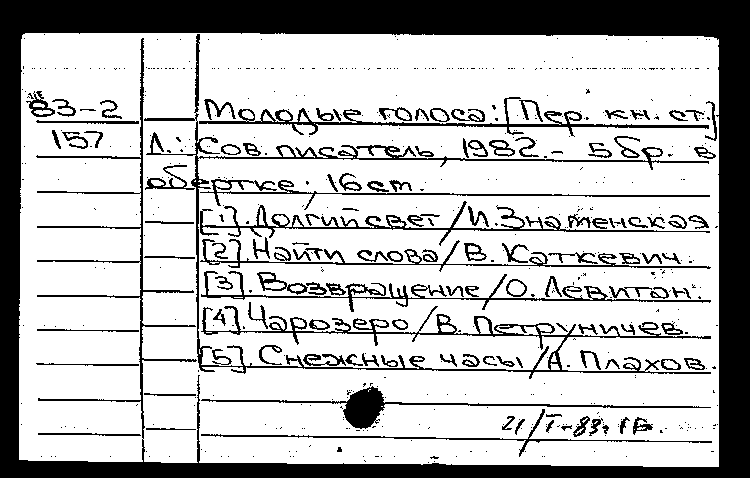 83-2 Молодые голоса: [Пер. кн. ст.]
157 Л.: Сов. писатель, 1982. - 5 бр. в
обертке; 16 cm.
[1]. Долгий свет / И. Знаменская.
[2]. Найти слова / В. Каткевич.
[3]. Возвращение / О. Левитан.
[4]. Чарозеро / В. Петруничев.
[5]. Снежные часы / А. Плахов.
21/I-83.